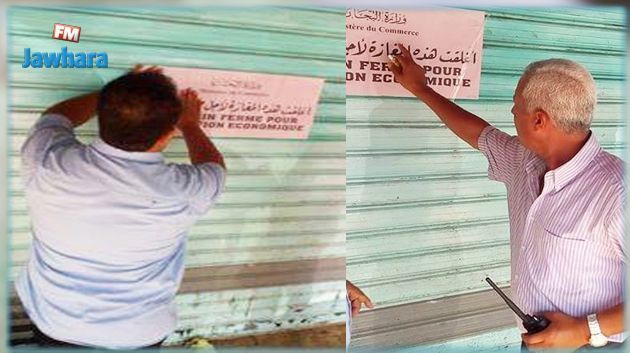 FM
Jawhara
وزارة التجارة
أغلقت هذه المغازة لأجل
IN FERMÉ POUR
TION ECONOMIQUE
وزارة التجارة
istère du Commerce
أغلقت هذه المغازة لأجل
IN FERMÉ POUR
TION ECONOMIQUE